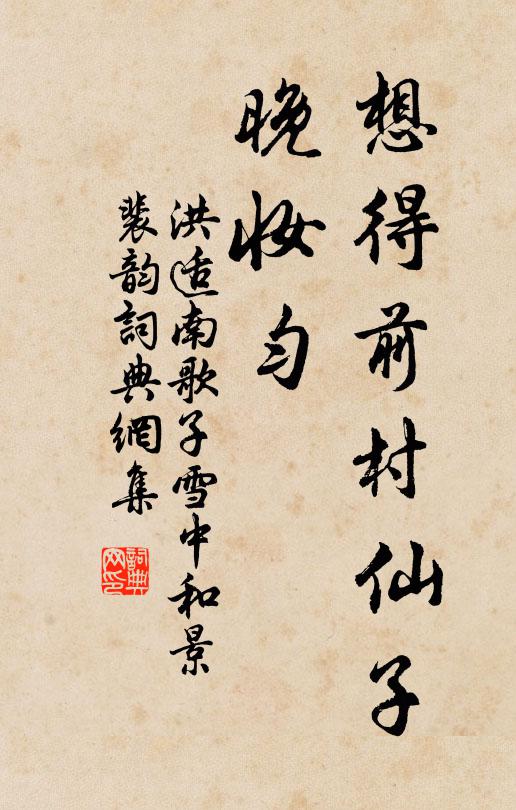 想得前村仙子
晚妆匀
洪适南歌子雪中和景
裴韵詞典網集
詞典
网印